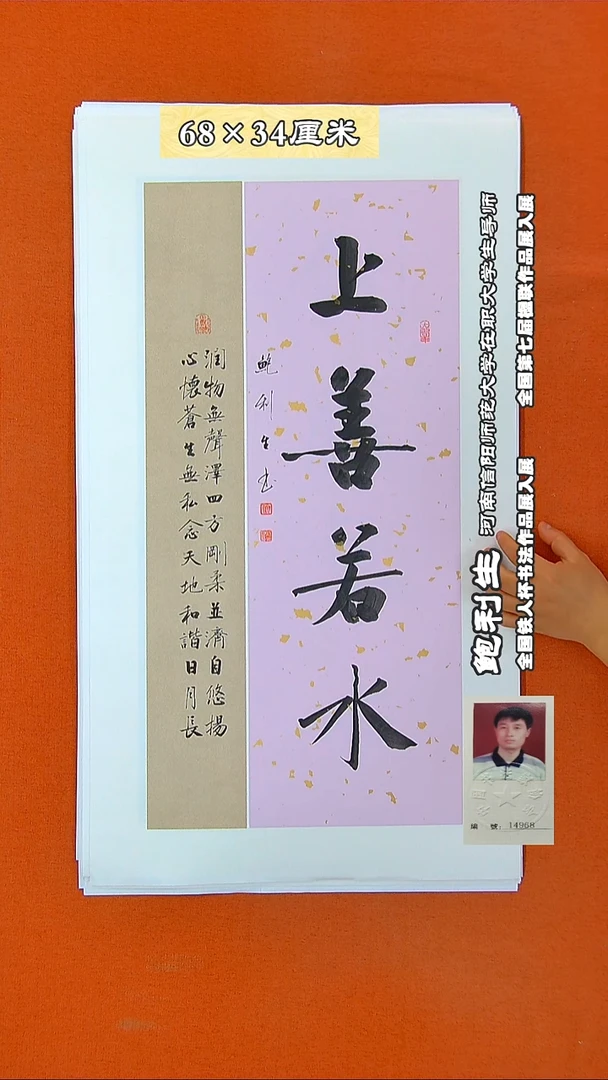 68×34厘米
上善若水
鲍利生书
润物無聲澤四方剛柔並濟自悠揚
心懷蒼生無私念天地和諧日月長
鲍利生 河南信阳师院大学在职大学生导师
全国铁人杯书法作品展入展 全国第七届楹联作品展入展
編 號：14968